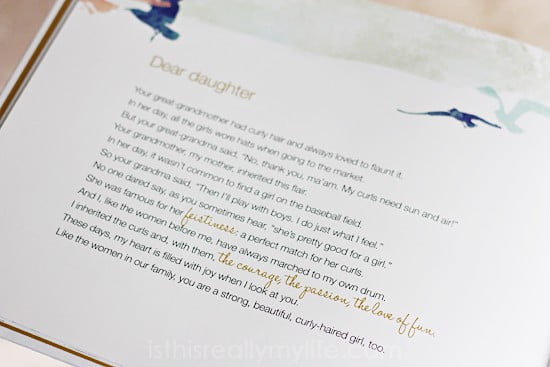 Dear daughter
Your great-grandmother had curly hair and always loved to flaunt it.
In her day, all the girls wore hats when going to the market.
But your great-grandma said, "No, thank you, ma'am. My curls need sun and air!"
Your grandmother, my mother, inherited this flair.
In her day, it wasn't common to find a girl on the baseball field.
So your grandma said, "Then I'll play with boys. I do just what I feel."
No one dared say, as you sometimes hear, "she's pretty good for a girl."
She was famous for her feistiness: a perfect match for her curls.
And I, like the women before me, have always marched to my own drum.
I inherited the curls and, with them, the courage, the passion, the love of fun.
These days, my heart is filled with joy when I look at you.
Like the women in our family, you are a strong, beautiful, curly-haired girl, too.
isthisreallymylife.com